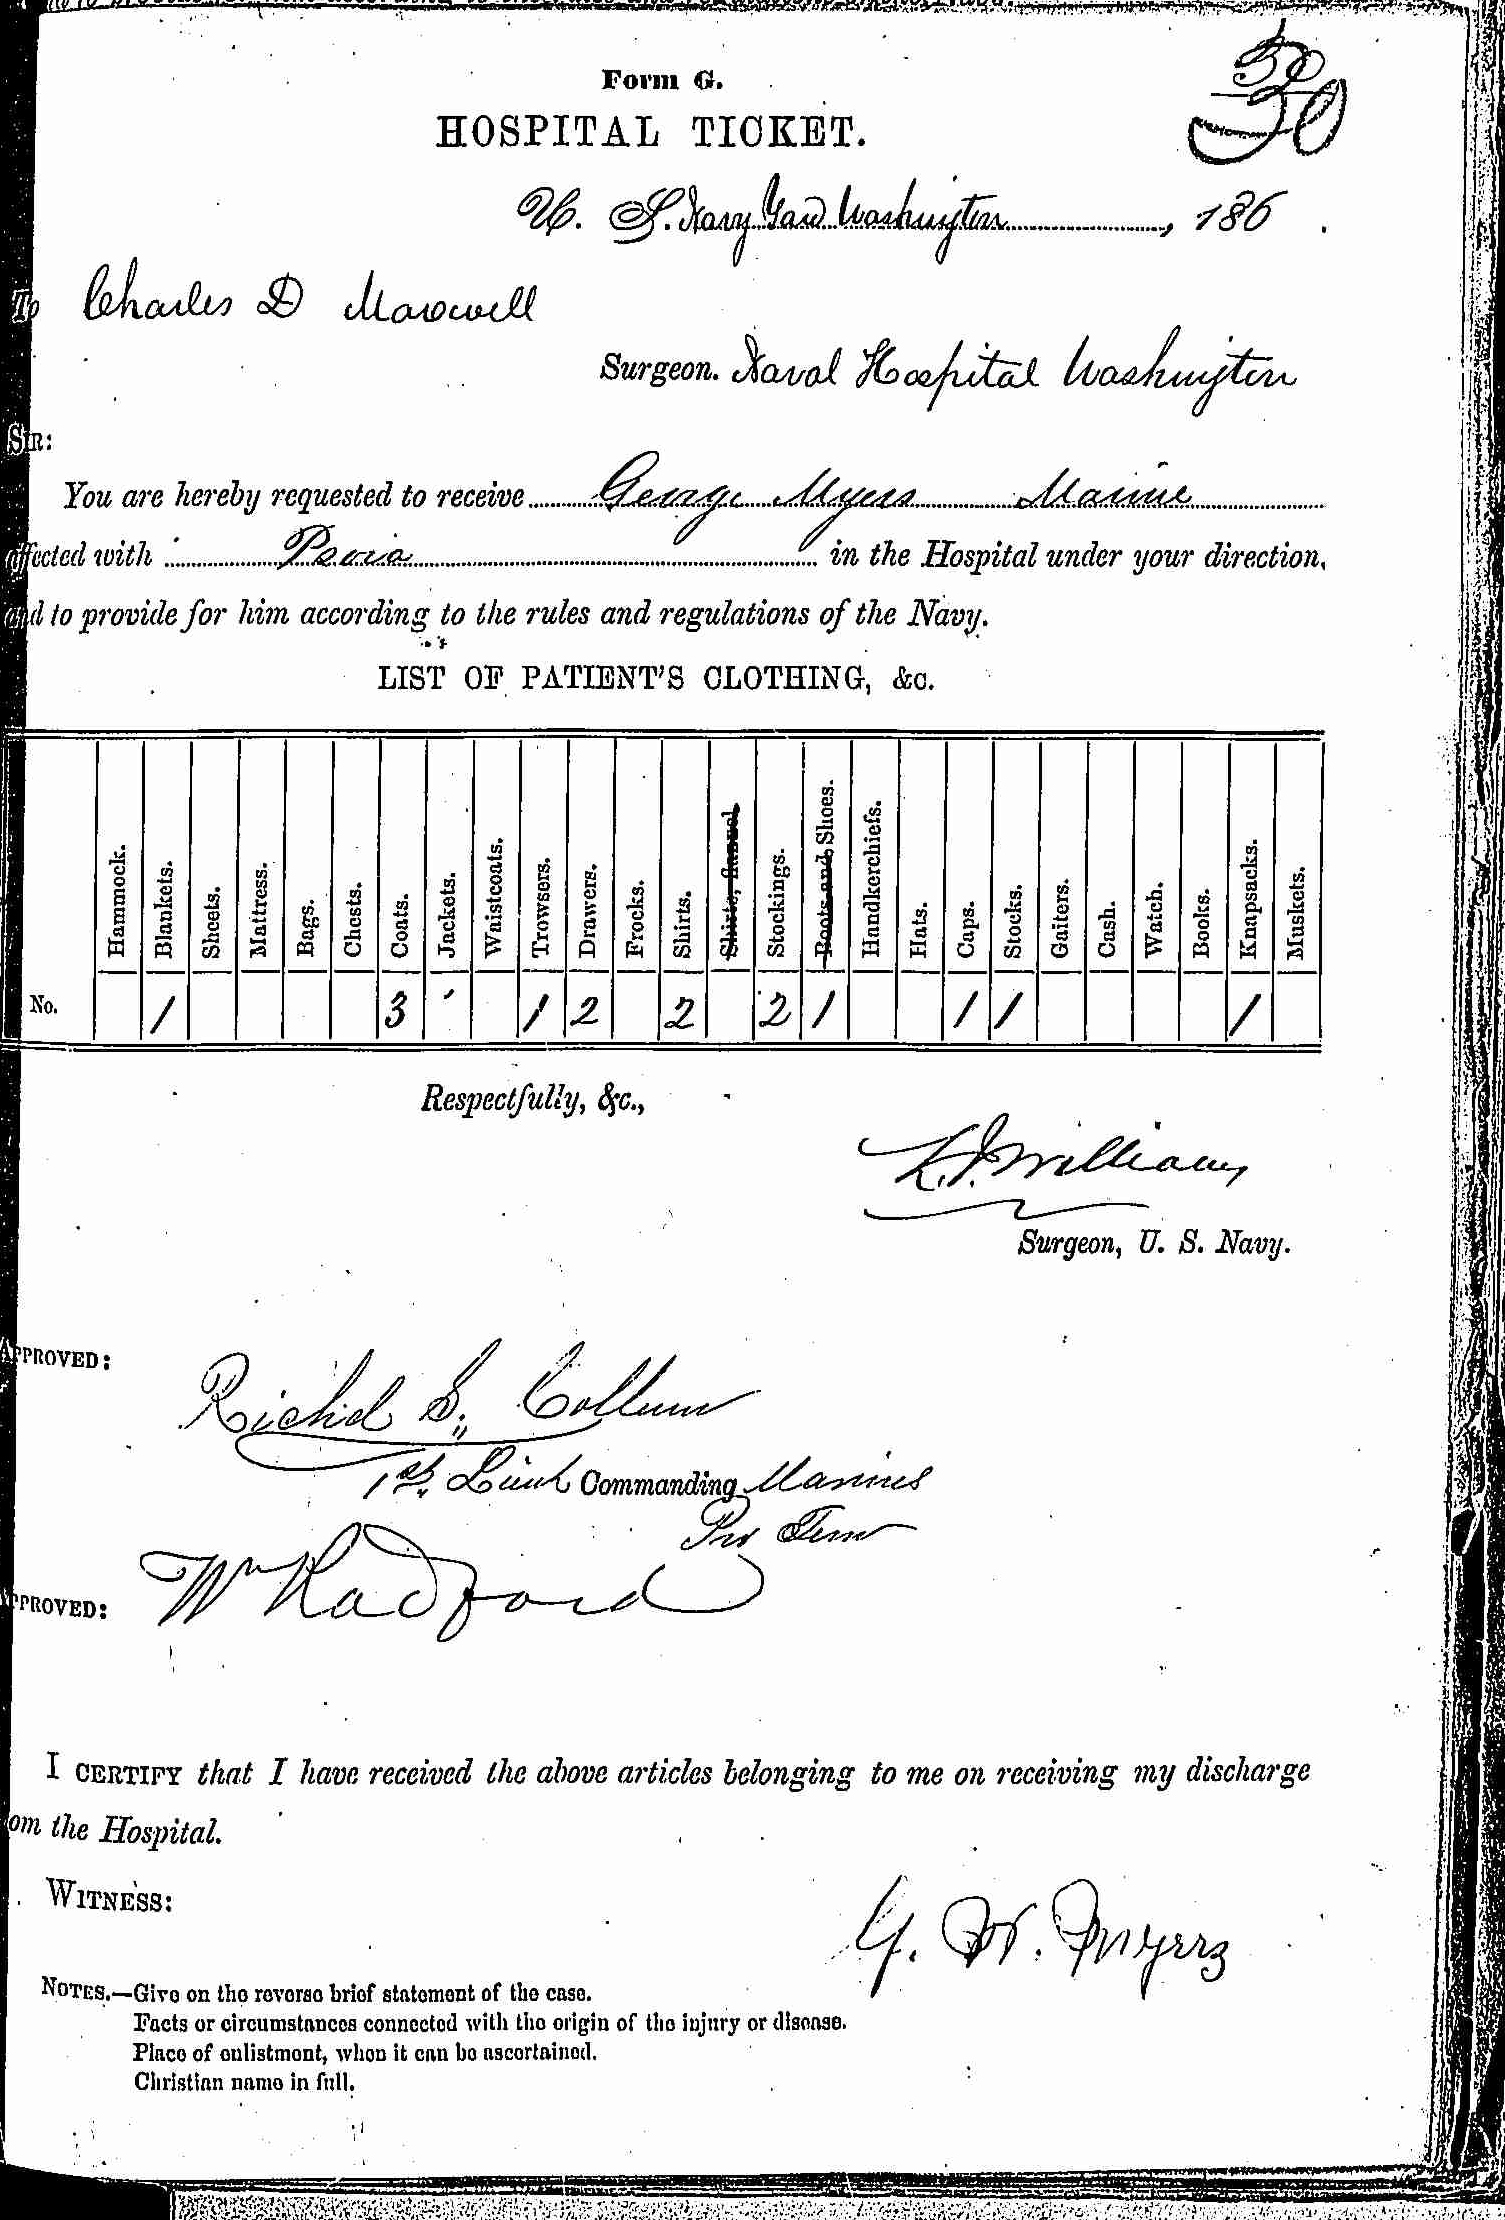 Form G.
30
30
HOSPITAL TICKET.
U. S. Navy Yard Washington, 186 .
To Charles D Maxwell
Surgeon. Naval Hospital Washington
SIR:
You are hereby requested to receive George Myers Marine
affected with Psora in the Hospital under your direction,
and to provide for him according to the rules and regulations of the Navy.
LIST OF PATIENT'S CLOTHING, &c.
Hammock. Blankets. Sheets. Mattress. Bags. Chests. Coats. Jackets. Waistcoats. Trowsers. Drawers. Frocks. Shirts. Shirts, flannel. Stockings. Boots and Shoes. Handkerchiefs. Hats. Caps. Stocks. Gaiters. Cash. Watch. Books. Knapsacks. Muskets.
No. 1 3 1 2 2 2 1 1 1 1
Respectfully, &c.,
Williams
Surgeon, U. S. Navy.
APPROVED:
Richd S. Collum
1st Lieut Commanding Marines
Pro Tem
APPROVED: Wm Radford
I CERTIFY that I have received the above articles belonging to me on receiving my discharge
om the Hospital.
WITNESS:
G. W. Myers
NOTES.—Give on the reverse brief statement of the case.
Facts or circumstances connected with the origin of the injury or disease.
Place of enlistment, when it can be ascertained.
Christian name in full.